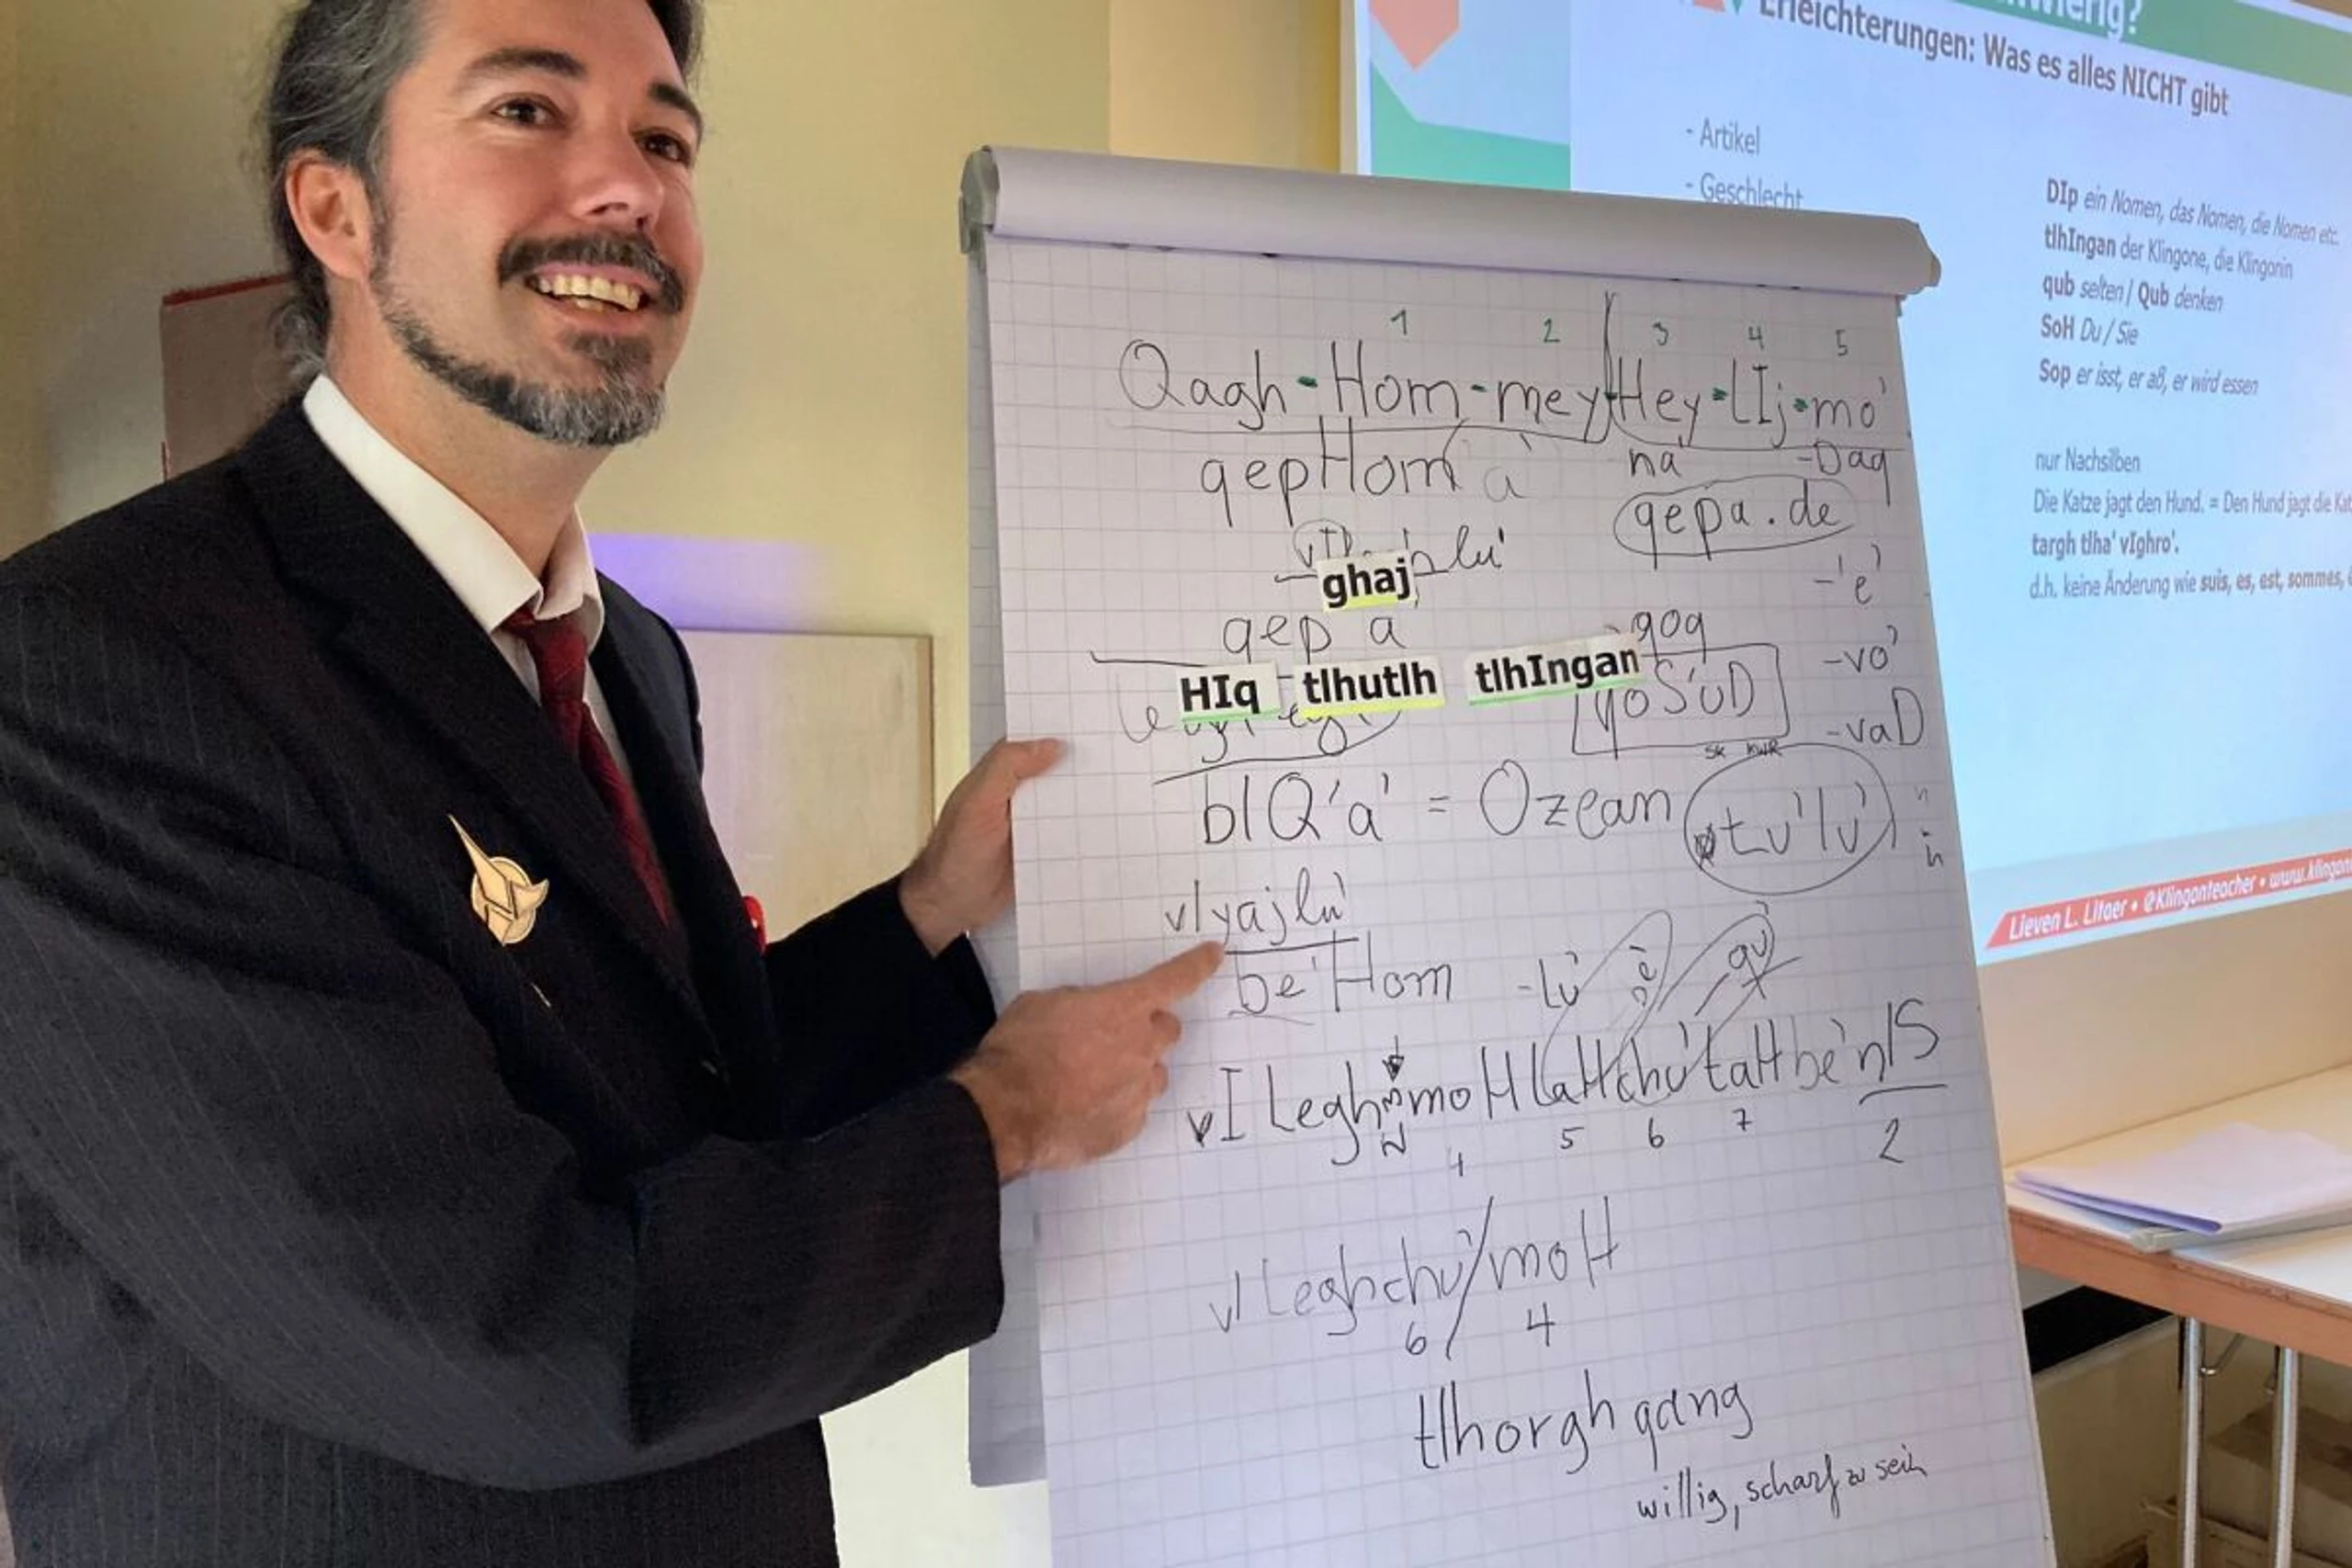 Erleichterungen: Was es alles NICHT gibt
- Artikel
- Geschlecht
DIp ein Nomen, das Nomen, die Nomen etc.
tlhIngan der Klingone, die Klingonin
qub selten / Qub denken
SoH Du / Sie
Sop er isst, er aß, er wird essen
nur Nachsilben
Die Katze jagt den Hund. = Den Hund jagt die
targh tlha' vIghro'.
d.h. keine Änderung wie suis, es, est, sommes,
Lieven L. Litaer • @Klingonteacher •
1 2 3 4 5
Qagh-Hom-mey-Hey-lIj-mo'
qepHom a'
na' -Daq
qepa.de
lu'
ghaj
-'e'
qep a
qoq
-vo'
HIq tlhutlh tlhIngan
yoS'uD
-vaD
bIQ'a' = Ozean
tu'lu'
vIyajlu'
be'Hom -lu' qu'
vI legh moH laH chu' taH be' nIS
4 5 6 7 2
vI leghchu'/moH
6 4
tlhorghqang
willig, scharf zu sein